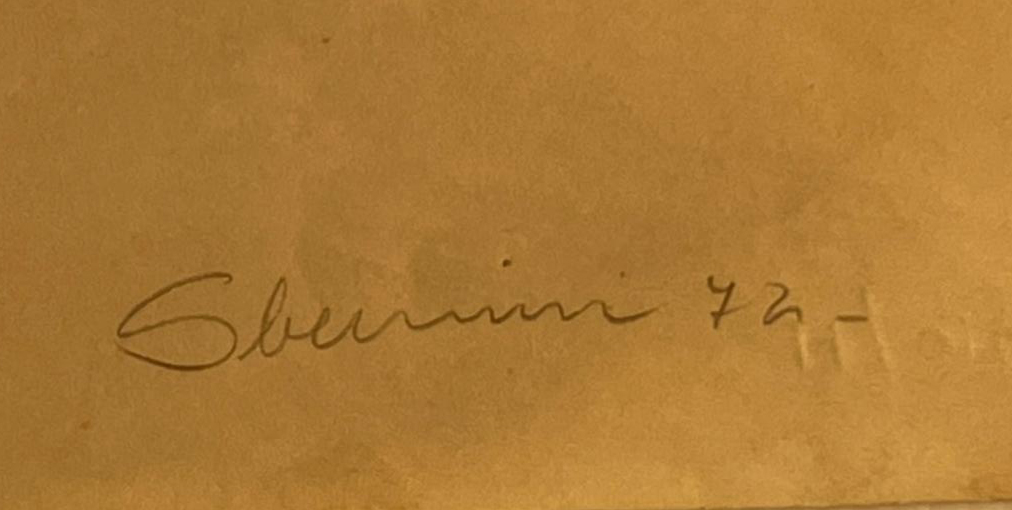 Sbernini 72-